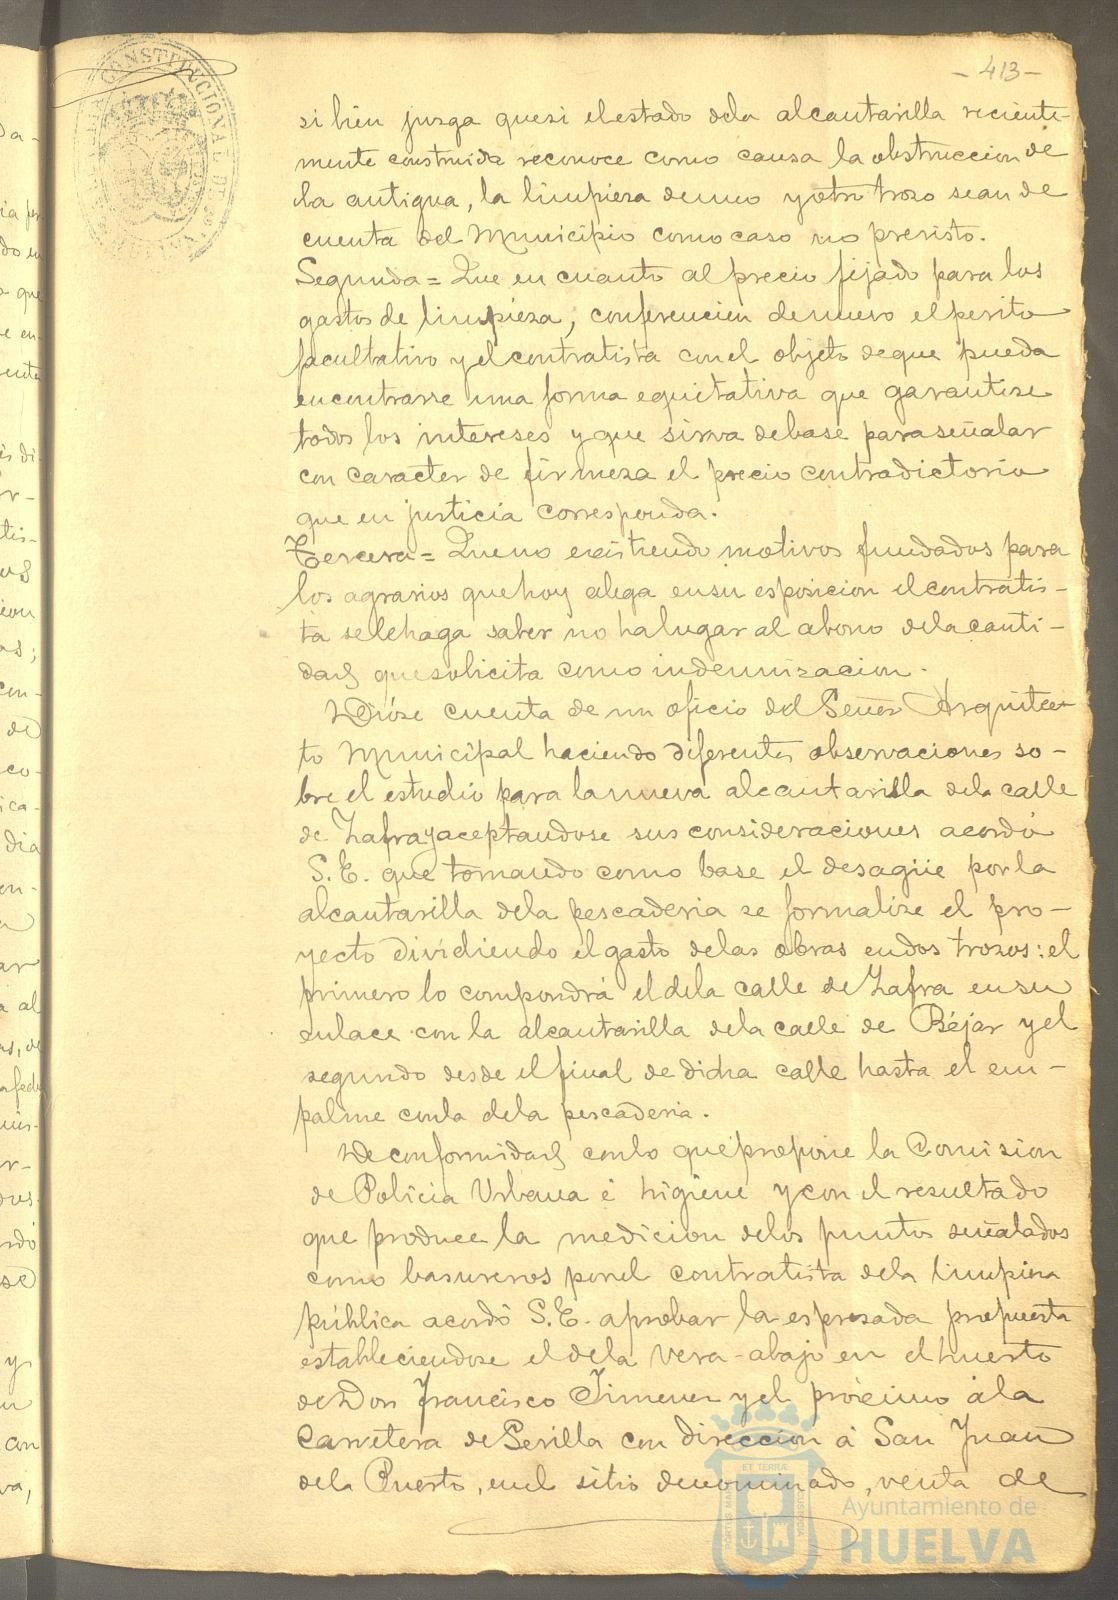 - 413 -
CONSTITUCIONAL DE
si bien juzga que si el estado de la alcantarilla reciente-
mente construida reconoce como causa la obstruccion de
la antigua, la limpieza de uno y otro trozo sean de
cuenta del Municipio como caso no previsto.
Segunda = Que en cuanto al precio fijado para los
gastos de limpieza, conferencien de nuevo el perito
facultativo y el contratista con el objeto de que pueda
encontrarse una forma equitativa que garantise
todos los intereses y que sirva de base para señalar
con caracter de firmeza el precio contradictorio
que en justicia corresponda.
Tercera = Que no existiendo motivos fundados para
los agravios que hoy alega en su esposicion el contratis-
ta se le haga saber no ha lugar al abono de la canti-
dad que solicita como indemnizacion.
Dióse cuenta de un oficio del Señor Arquitec-
to Municipal haciendo diferentes observaciones so-
bre el estudio para la nueva alcantarilla de la calle
de Zafra y aceptandose sus consideraciones acordó
S.E. que tomando como base el desagüe por la
alcantarilla de la pescaderia se formalize el pro-
yecto dividiendo el gasto de las obras en dos trozos: el
primero lo compondrá el de la calle de Zafra en su
enlace con la alcantarilla de la calle de Béjar y el
segundo desde el final de dicha calle hasta el em-
palme con la de la pescaderia.
De conformidad con lo que propone la Comision
de Policia Urbana é higiene y con el resultado
que produce la medicion de los puntos señalados
como basureros por el contratista de la limpieza
pública acordó S.E. aprobar la espresada propuesta
estableciendose el de la Vera-abajo en el huerto
de Don Francisco Jimenez y el próximo á la
Carretera de Sevilla con direccion á San Juan
del Puerto, en el sitio denominado, venta de
ET TERRÆ
Ayuntamiento de
HUELVA